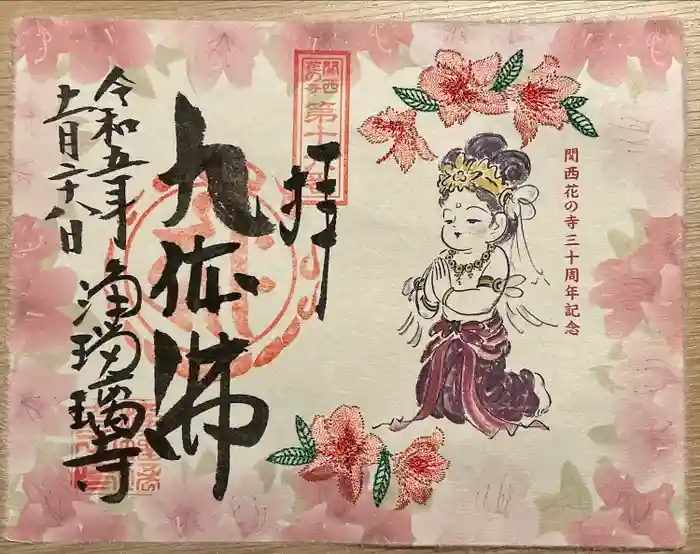 関西花の寺三十周年記念
拝
関西
花の寺
第十
九体佛
浄瑠璃寺
令和五年
十一月二十八日